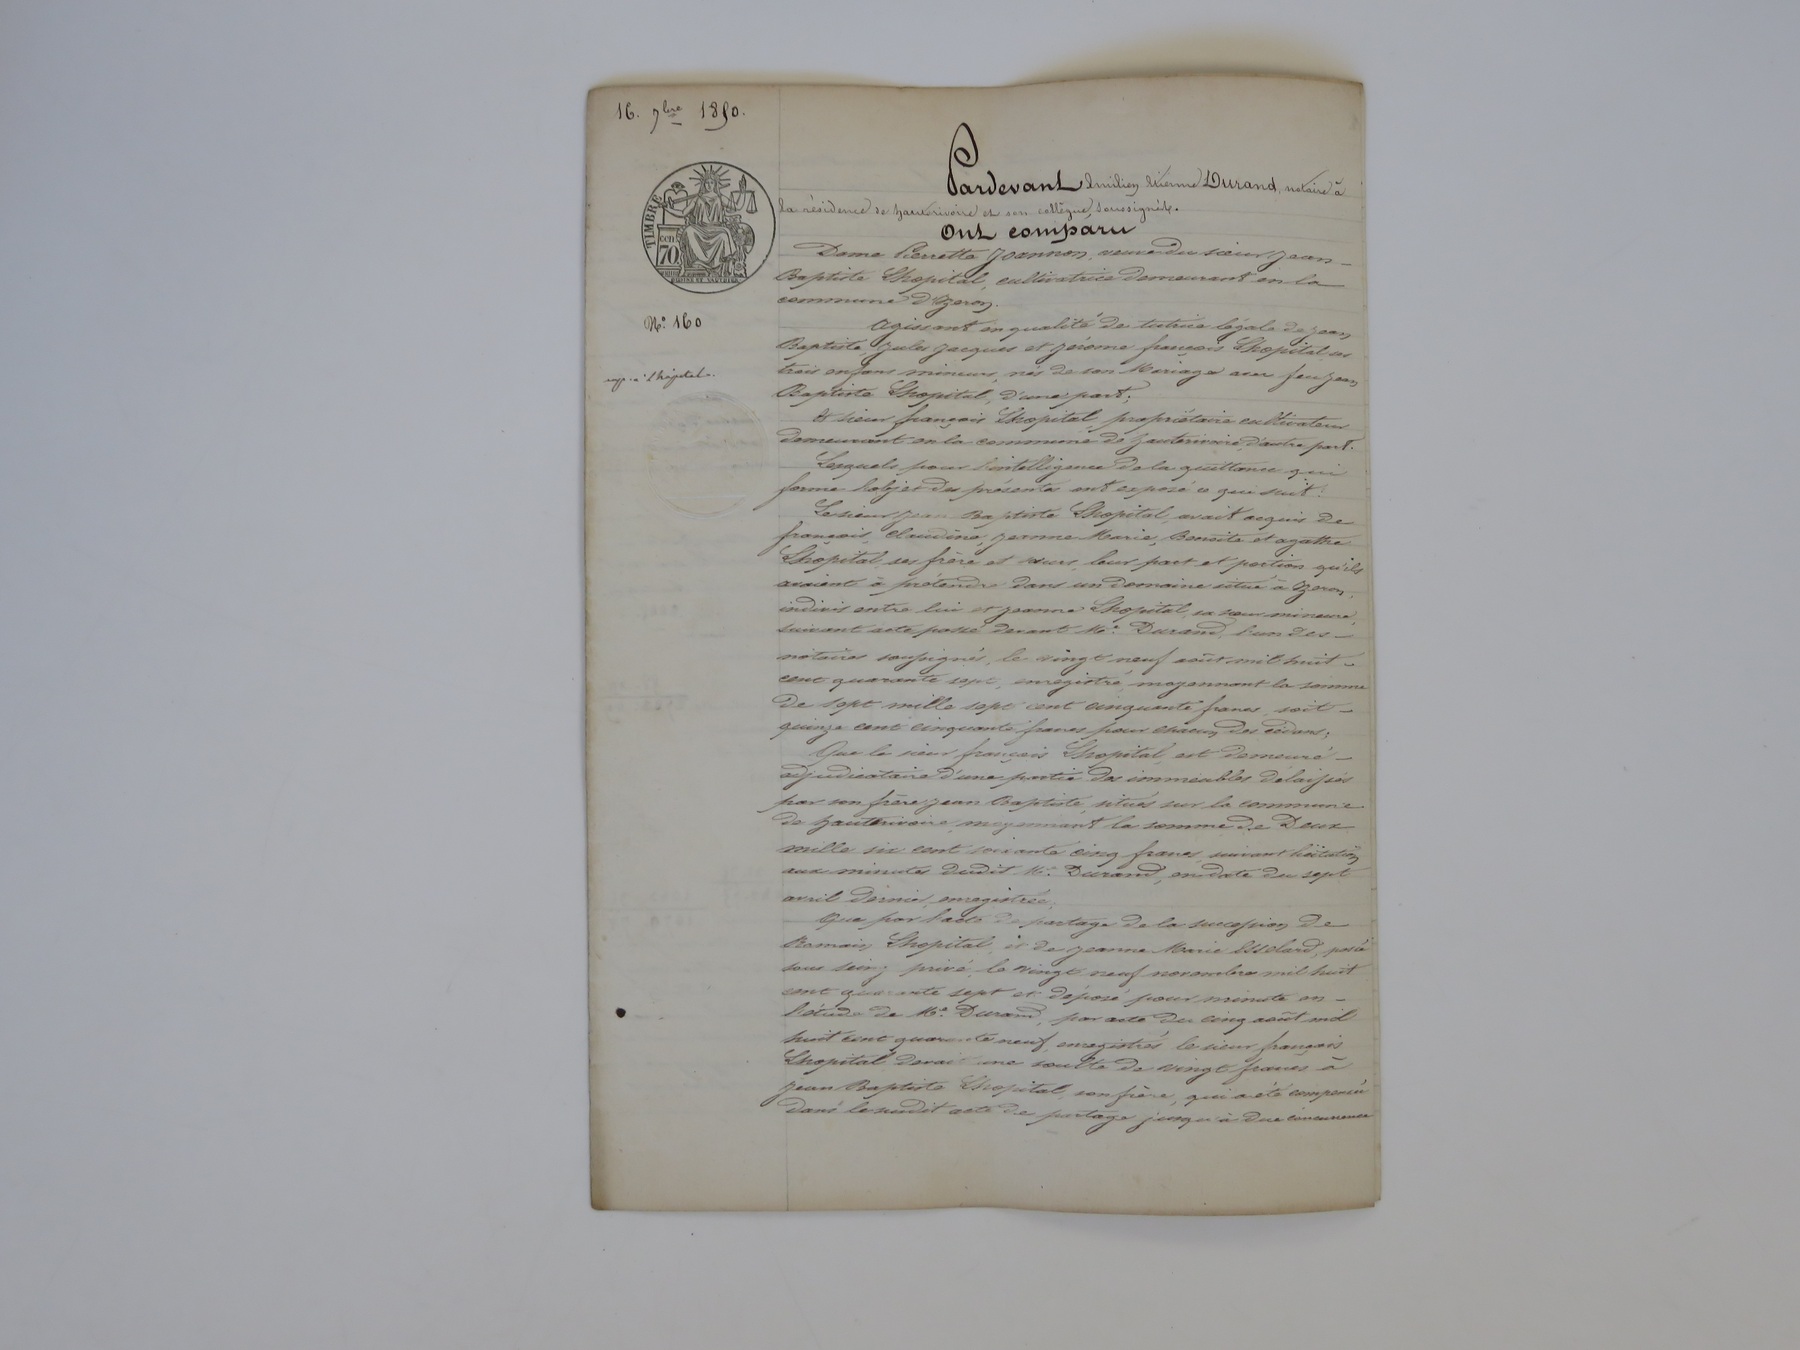 16. 7bre 1850.
TIMBRE
cen
70
No. 160
Pardevant Emilien Etienne Durand, notaire à
la résidence de hauterivoire et son collègue, soussignés.
Ont comparu
Dame Pierrette Joannon, veuve du sieur jean-
Baptiste Lhopital, cultivatrice demeurant en la
commune d'Yzeron.
Agissant en qualité de tutrice légale de jean
Baptiste, jules jacques et jérome françois Lhopital ses
trois enfans mineurs, nés de son Mariage avec feu jean
Baptiste Lhopital, d'une part;
Et sieur françois Lhopital, propriétaire cultivateur
demeurant en la commune de hauterivoire, d'autre part.
Lesquels pour l'intelligence de la quittance qui
forme l'objet des présentes ont exposé ce qui suit:
Le sieur jean Baptiste Lhopital, avait acquis de
françois, Claudine, jeanne Marie, Benoite et agathe
Lhopital, ses frère et sœurs, leur part et portion qu'ils
avaient à prétendre dans un domaine situé à Yzeron,
indivis entre lui et jeanne Lhopital, sa sœur mineure,
suivant acte passé devant Me. Durand, l'un des-
notaires soussignés, le vingt neuf août mil huit-
cent quarante sept, enregistré, moyennant la somme
de sept mille sept cent cinquante francs, soit-
quinze cent cinquante francs pour chacun des cédans;
Que le sieur françois Lhopital, est demeuré-
adjudicataire d'une partie des immeubles délaissés
par son frère jean Baptiste, situés sur la commune
de hauterivoire, moyennant la somme de Deux
mille six cent soixante cinq francs, suivant licitation
aux minutes dudit Me. Durand, en date du sept
avril dernier, enregistrée;
Que par l'acte de partage de la succession de
Romain Lhopital, et de jeanne Marie, passé
sous seing privé, le vingt neuf novembre mil huit
cent quarante sept et déposé pour minute en-
l'étude de Me. Durand, par acte du cinq août mil
huit cent quarante neuf, enregistrés, le sieur françois
Lhopital, devait une soulte de vingt francs à
jean Baptiste Lhopital, son frère, qui a été compensée
dans le susdit acte de partage jusqu'à due concurrence